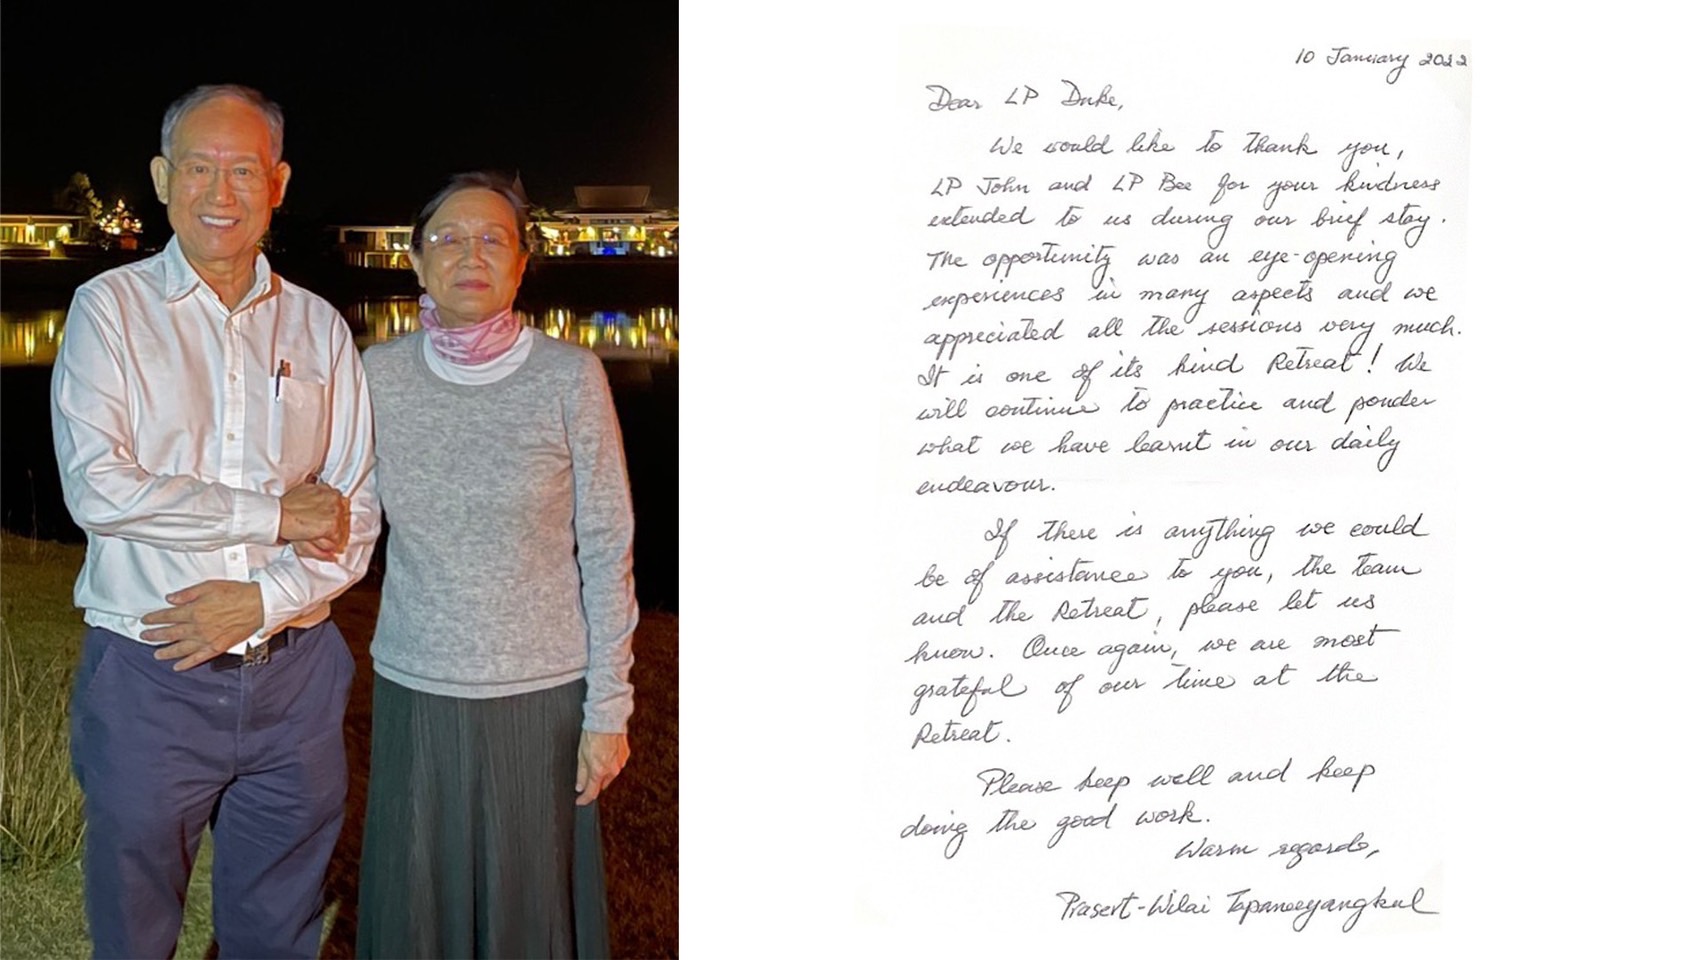 10 January 2022
Dear LP Duke,
We would like to thank you,
LP John and LP Bee for your kindness
extended to us during our brief stay.
The opportunity was an eye-opening
experiences in many aspects and we
appreciated all the sessions very much.
It is one of its kind Retreat! We
will continue to practice and ponder
what we have learnt in our daily
endeavour.
If there is anything we could
be of assistance to you, the team
and the Retreat, please let us
know. Once again, we are most
grateful of our time at the
Retreat.
Please keep well and keep
doing the good work.
Warm regards,
Prasert-Wilai Tapaneeyangkul